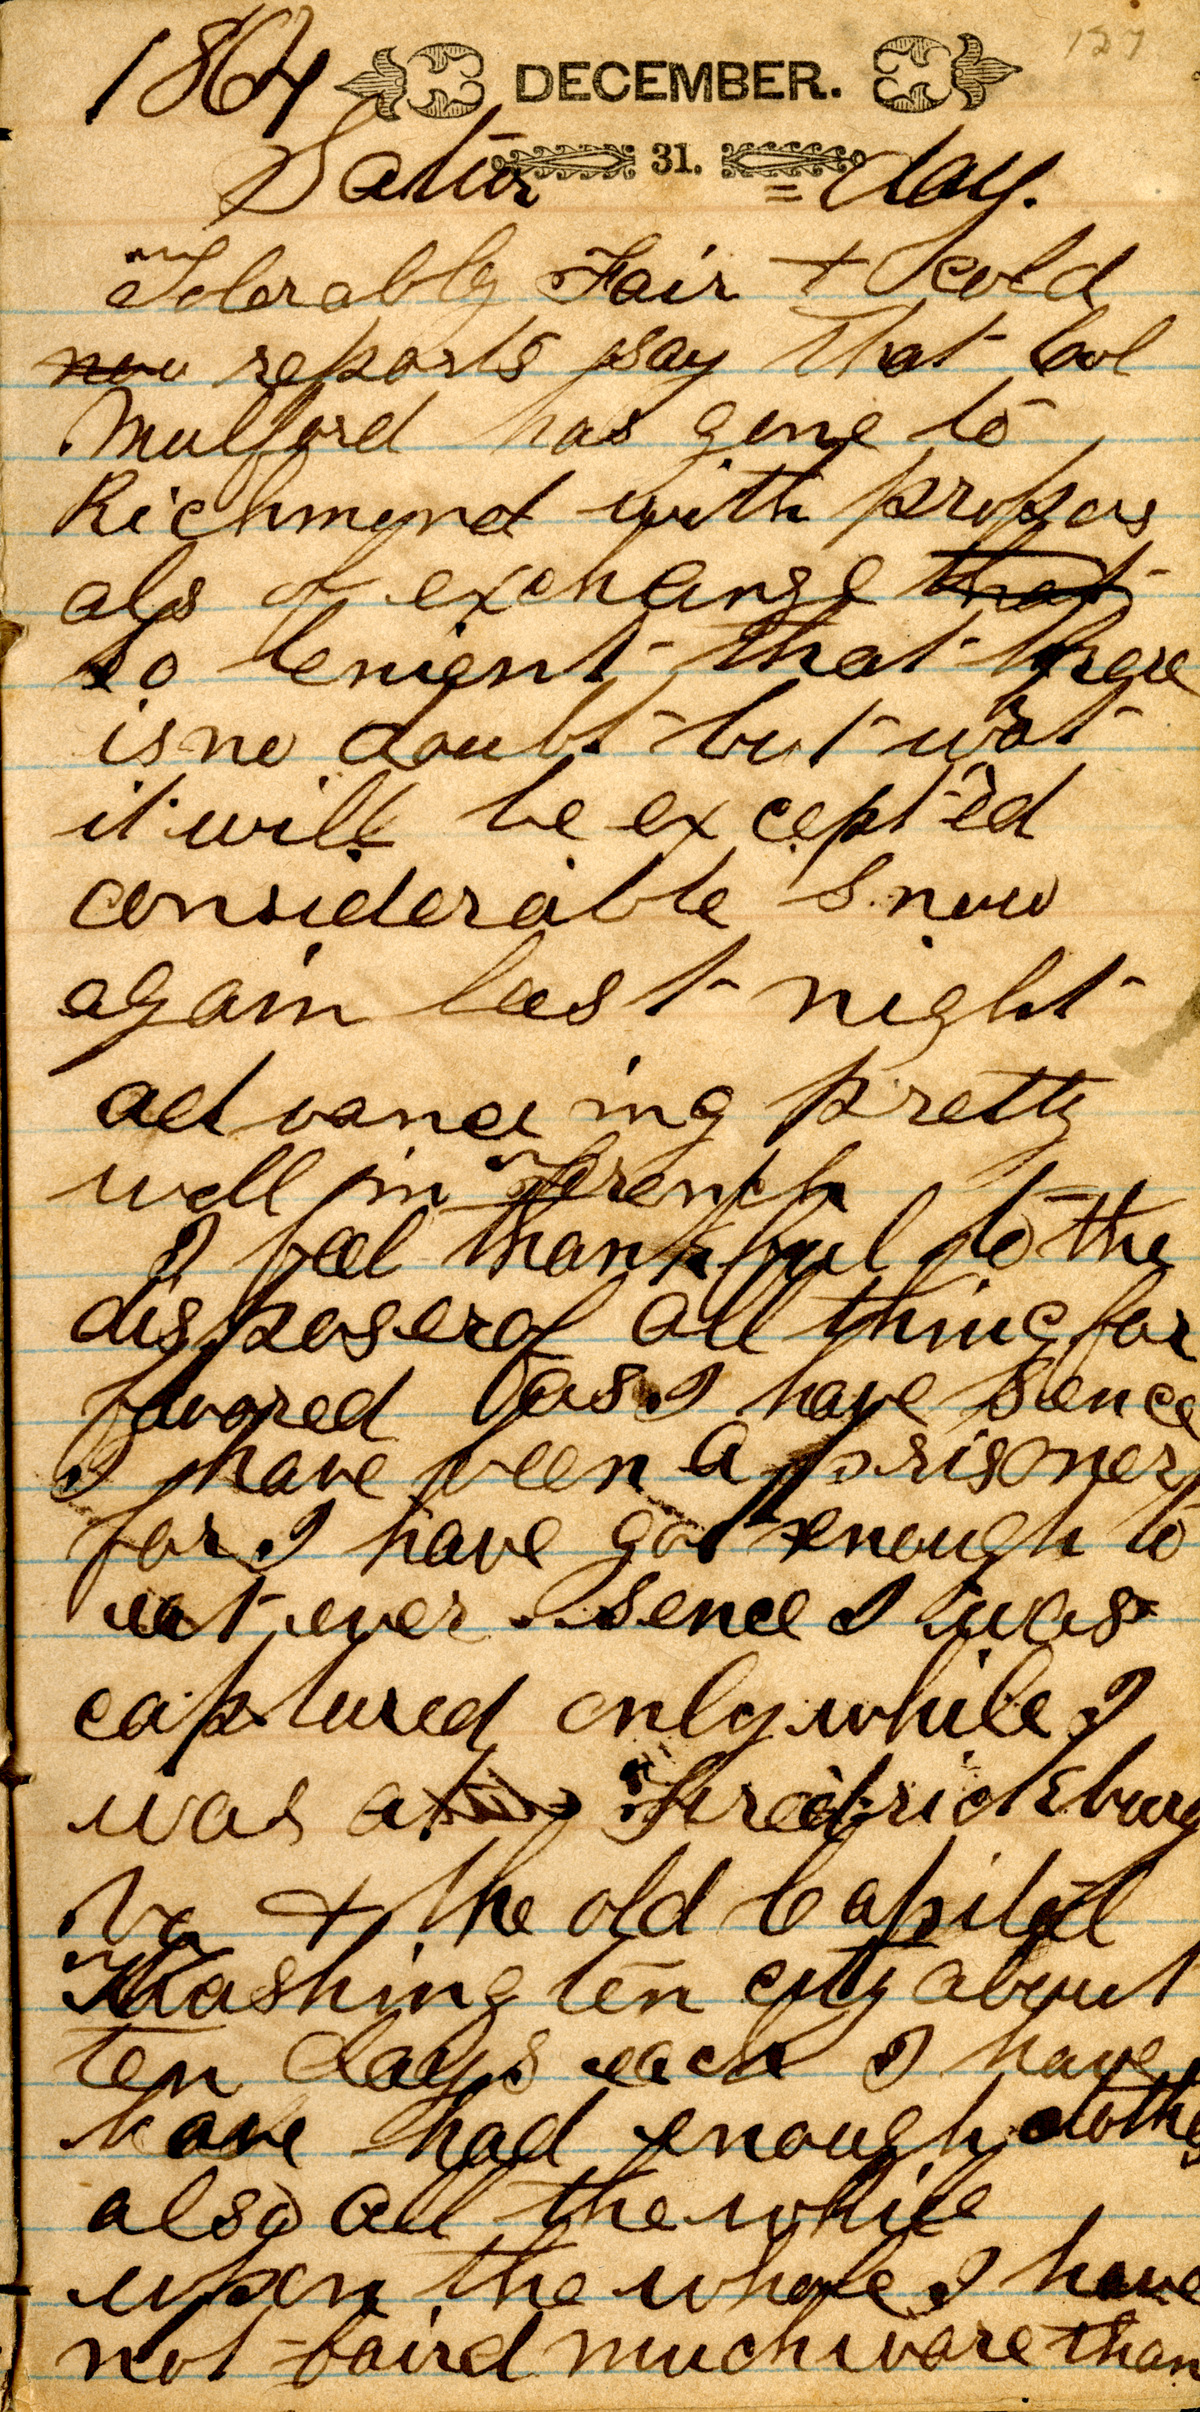 127
1864 DECEMBER.
Satur 31. =day.
Tolerably Fair + cold
now reports say that Col
Mulford has gone to
Richmond with propos
als of exchange that
so lenient that there
is no doubt but wat
it will be excepted
considerable snow
again last night
advancing pretty
well in French
I feel thankful to the
disposer of all thing for
favored as I have sence
I have been a prisoner
for I have got enough to
eat ever sence I was
captured only while I
was at Fredricksburg
Va + the old Capitol
Washington city about
ten days each I have
have had enough clothes
also all the while
upon the whole I have
not faird much worse than